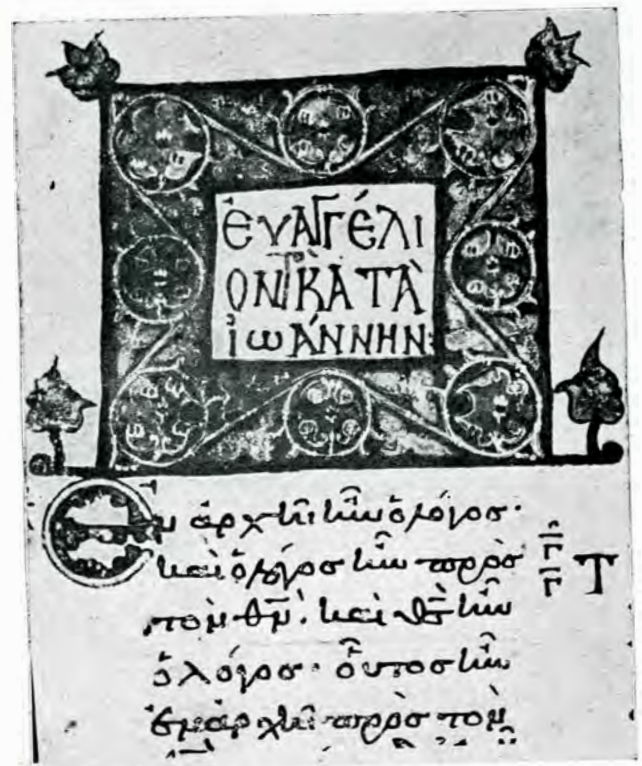 ἐυαγγέλι
ον κατὰ
ἰωάννην:
Ἐν ἀρχῆι ἦν ὁ λόγος·
καὶ ὁ λόγος ἦν πρὸς
τὸν θν̄. καὶ θς̄ ἦν
ὁ λόγος· οὗτος ἦν
ἐν ἀρχῆι πρὸς τὸν